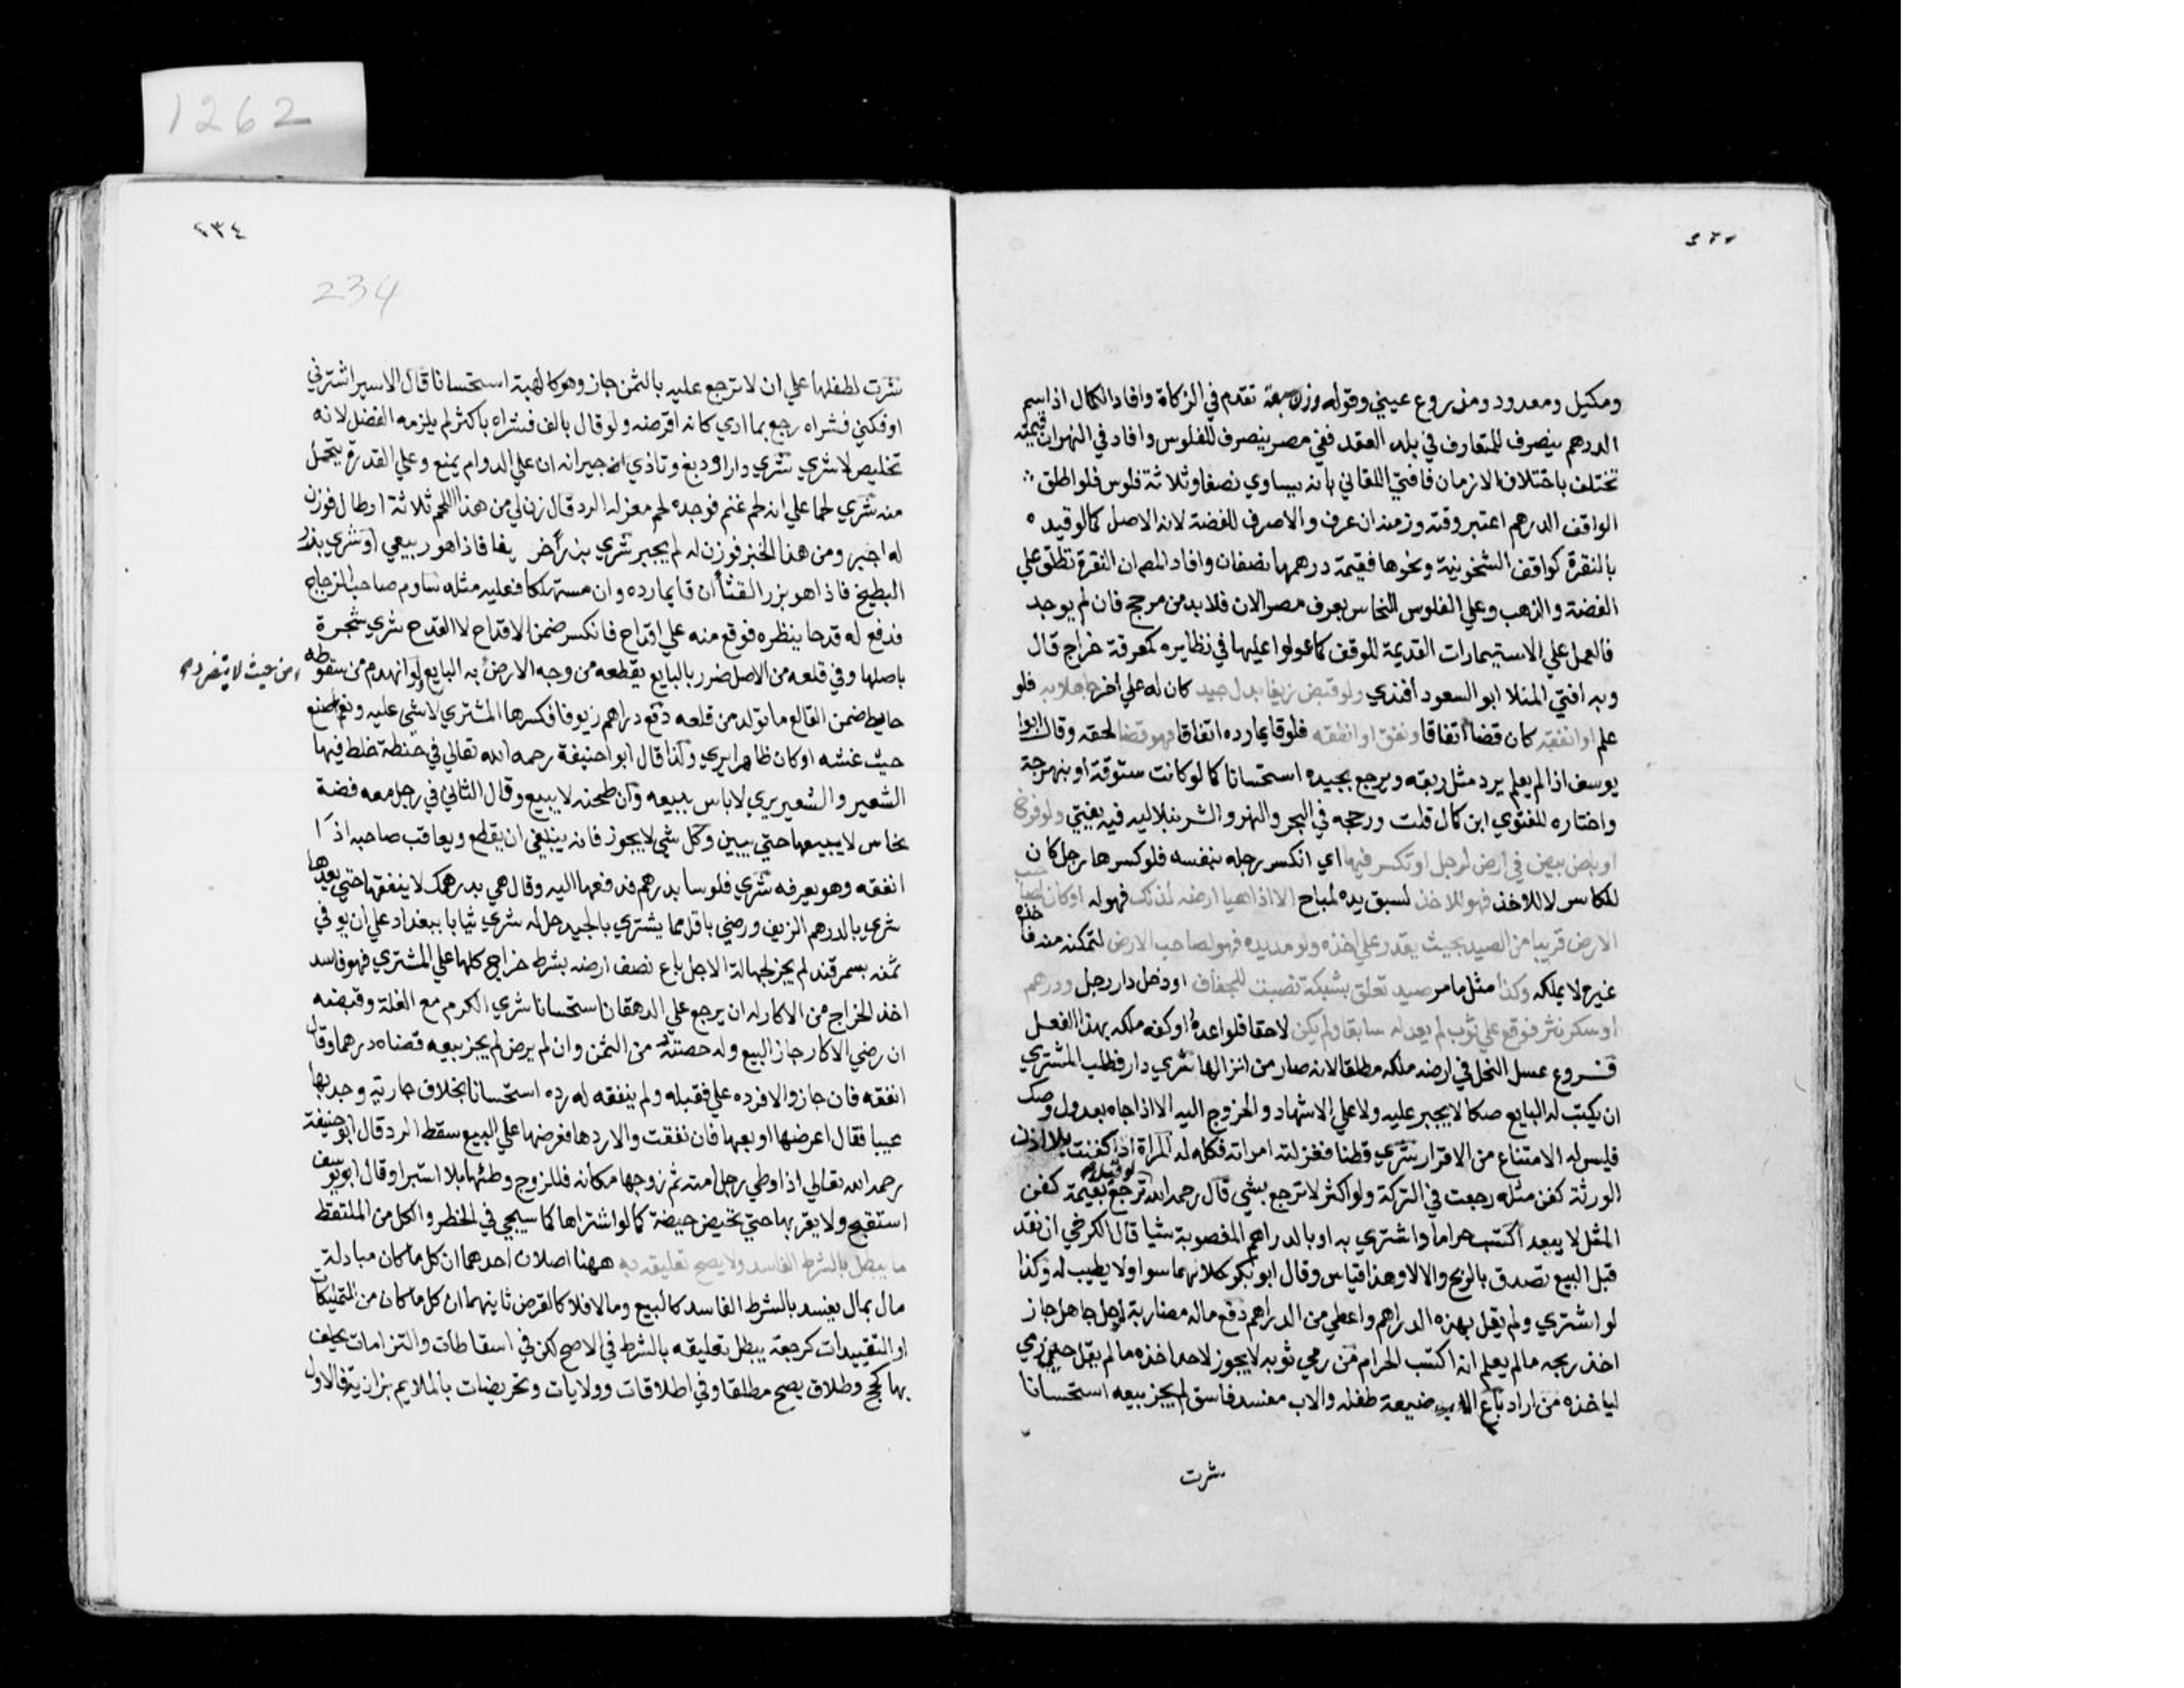 1262
ومكيل ومعدود ومذروع عيني وقوله وزن سبعة تقدم في الزكاة وافاد الكمال ان اسم
الدرهم ينصرف للمتعارف في بلد العقد ففي مصر ينصرف للفلوس وافاد في النهر ان قيمته
تختلف باختلاف الازمان فافتي اللقاني بانه يساوي نصفا وثلاثة فلوس فلو اطلق
الواقف الدرهم اعتبر وقته وزمنه ان عرف والا صرف للفضة لانه الاصل كما لو قيده
بالنقرة كواقف الشيخونية ونحوها فقيمة درهمها نصفان وافاد المص ان النقرة تطلق علي
الفضة والذهب وعلي الفلوس النحاس بعرف مصر الان فلا بد من مرجح فان لم يوجد
فالعمل علي الاستيمارات القديمة للوقف كما عولوا عليها في نظايره كمعرفة خراج قال
وبه افتي المنلا ابو السعود افندي ولو قبض زيفا بدل جيد كان له علي اخر جاهلا به فلو
علم او انفقه كان قضا اتفاقا ونفق او انفقه فلو قايما رده اتفاقا فهو قضا لحقه وقال ابوا
يوسف اذا لم يعلم يرد مثل زيفه ويرجع بجيده استحسانا كما لو كانت ستوقة او بنهرجة
واختاره للفتوي ابن كمال قلت ورجحه في البحر والنهر والشرنبلاليه فبه يفتي ولو فرخ
او باض بيض في ارض لرجل او تكسر فيها اي انكسر رجله بنفسه فلو كسرها رجل كان
للكاسر لا للاخذ فهو للاخذ لسبق يده لمباح الا اذا هيا ارضه لذلك فهو له او كان صاحب
الارض قريبا من الصيد بحيث يقدر علي اخذه ولو مد يده فهو لصاحب الارض لتمكنه منه فاخذه
غيره لا يملكه وكذا مثل ما مر صيد تعلق بشبكة نصبت للجفاف او دخل دار رجل ودرهم
او سكر نثر فوقع علي ثوب لم يعد له سابقا ولم يكن لاحقا فلو اعده او كفه ملكه بهذا الفعل
فروع عسل النحل في ارضه ملكه مطلقا لانه صار من انزالها شري دار فطلب المشتري
ان يكتب له البايع صكا لا يجبر عليه ولا علي الاشهاد والخروج اليه الا اذا جاه بعدول وصك
فليس له الامتناع من الاقرار شري قطنا فغزلته امراته فكله له المراة اذا كفنت بلا اذن
الورثة كفن مثله رجعت في التركة ولو اكثر لا ترجع بشي قال رحمه الله ولو قيل ترجع بقيمة كفن
المثل لا يبعد اكتسب حراما واشتري به او بالدراهم المغصوبة شيا قال الكرخي ان نقد
قبل البيع تصدق بالربح والا لا وهذا قياس وقال ابو بكر كلاهما سوا ولا يطيب له وكذا
لو اشتري ولم يقل بهذه الدراهم واعطي من الدراهم دفع ماله مضاربة لرجل جاهل جاز
اخذ ربحه ما لم يعلم انه اكتسب الحرام من رمي ثوبه لا يجوز لاحد اخذه ما لم يقل حين رمي
لياخذه من اراد باع الاب ضيعة طفله والاب مفسد فاسق لم يجز بيعه استحسانا
شرت
٢٣٤
234
شرت لطفلها علي ان لا ترجع عليه بالثمن جاز وهو كالهبة استحسانا قال الاسير اشترني
او فكني فشراه رجع بما ادي كانه اقرضه ولو قال بالف فشراه باكثر لم يلزمه الفضل لانه
تخليص لا شري شري دارا ودبغ وتاذي جيرانه ان علي الدوام يمنع وعلي القدرة يتحمل
منه شري لحما علي انه لحم غنم فوجده لحم معز له الرد قال زن لي من هذا اللحم ثلاثة ارطال فوزن
له اجبر ومن هذا الخبز فوزن له لم يجبر شري بزرا خريفا فاذا هو ربيعي او شري بذر
البطيخ فاذا هو بزر القثا ان قايما رده وان مستهلكا فعليه مثله ساوم صاحب الزجاج
فدفع له قدحا ينظره فوقع منه علي اقداح فانكسر ضمن الاقداح لا القدح شري شجرة
باصلها وفي قلعه من الاصل ضرر بالبايع يقطعه من وجه الارض من حيث لا يتضرر به البايع ولو انهدم من سقوطه
حايط ضمن القالع ما تولد من قلعه دفع دراهم زيوفا فكسرها المشتري لا شي عليه ونعم ما صنع
حيث غشه او كان ظاهرا يري وكذا قال ابو حنيفة رحمه الله تعالي في حنطة خلط فيها
الشعير والشعير يري لا باس ببيعه وان طحنه لا يبيع وقال الثاني في رجل معه فضة
نحاس لا يبيعها حتي يبين وكل شي لا يجوز فانه ينبغي ان يقطع ويعاقب صاحبه اذا
انفقه وهو يعرفه شري فلوسا بدرهم فدفعها اليه وقال هي بدرهمك لا ينفقها حتي يعدها
شري بالدرهم الزيف ورضي باقل مما يشتري بالجيد حل له شري ثيابا ببغداد علي ان يوفي
ثمنه بسمرقند لم يجز لجهالة الاجل باع نصف ارضه بشرط خراج كلها علي المشتري فهو فاسد
اخذ الخراج من الاكار له ان يرجع علي الدهقان استحسانا شري الكرم مع الغلة وقبضه
ان رضي الاكار جاز البيع وله حصته من الثمن وان لم يرض لم يجز بيعه قضاه درهما وقال
انفقه فان جاز والا فرده علي فقبله ولم ينفقه له رده استحسانا بخلاف جارية وجد بها
عيبا فقال اعرضها او بعها فان نفقت والا ردها فعرضها علي البيع سقط الرد قال ابو حنيفة
رحمه الله تعالي اذا وطي رجل امته ثم زوجها مكانه فللزوج وطئها بلا استبرا وقال ابو يوسف
استقبح ولا يقربها حتي تحيض حيضة كما لو اشتراها كما سيجي في الحظر والكل من الملتقط
ما يبطل بالشرط الفاسد ولا يصح تعليقه به ههنا اصلان احدهما ان كل ما كان مبادلة
مال بمال يفسد بالشرط الفاسد كالبيع وما لا فلا كالقرض ثانيهما ان كل ما كان من التمليكات
او التقييدات كرجعة يبطل تعليقه بالشرط في الاصح لكن في اسقاطات والتزامات يحلف
بها كحج وطلاق يصح مطلقا وفي اطلاقات وولايات وتحريضات بالملايم بزازية فالاول